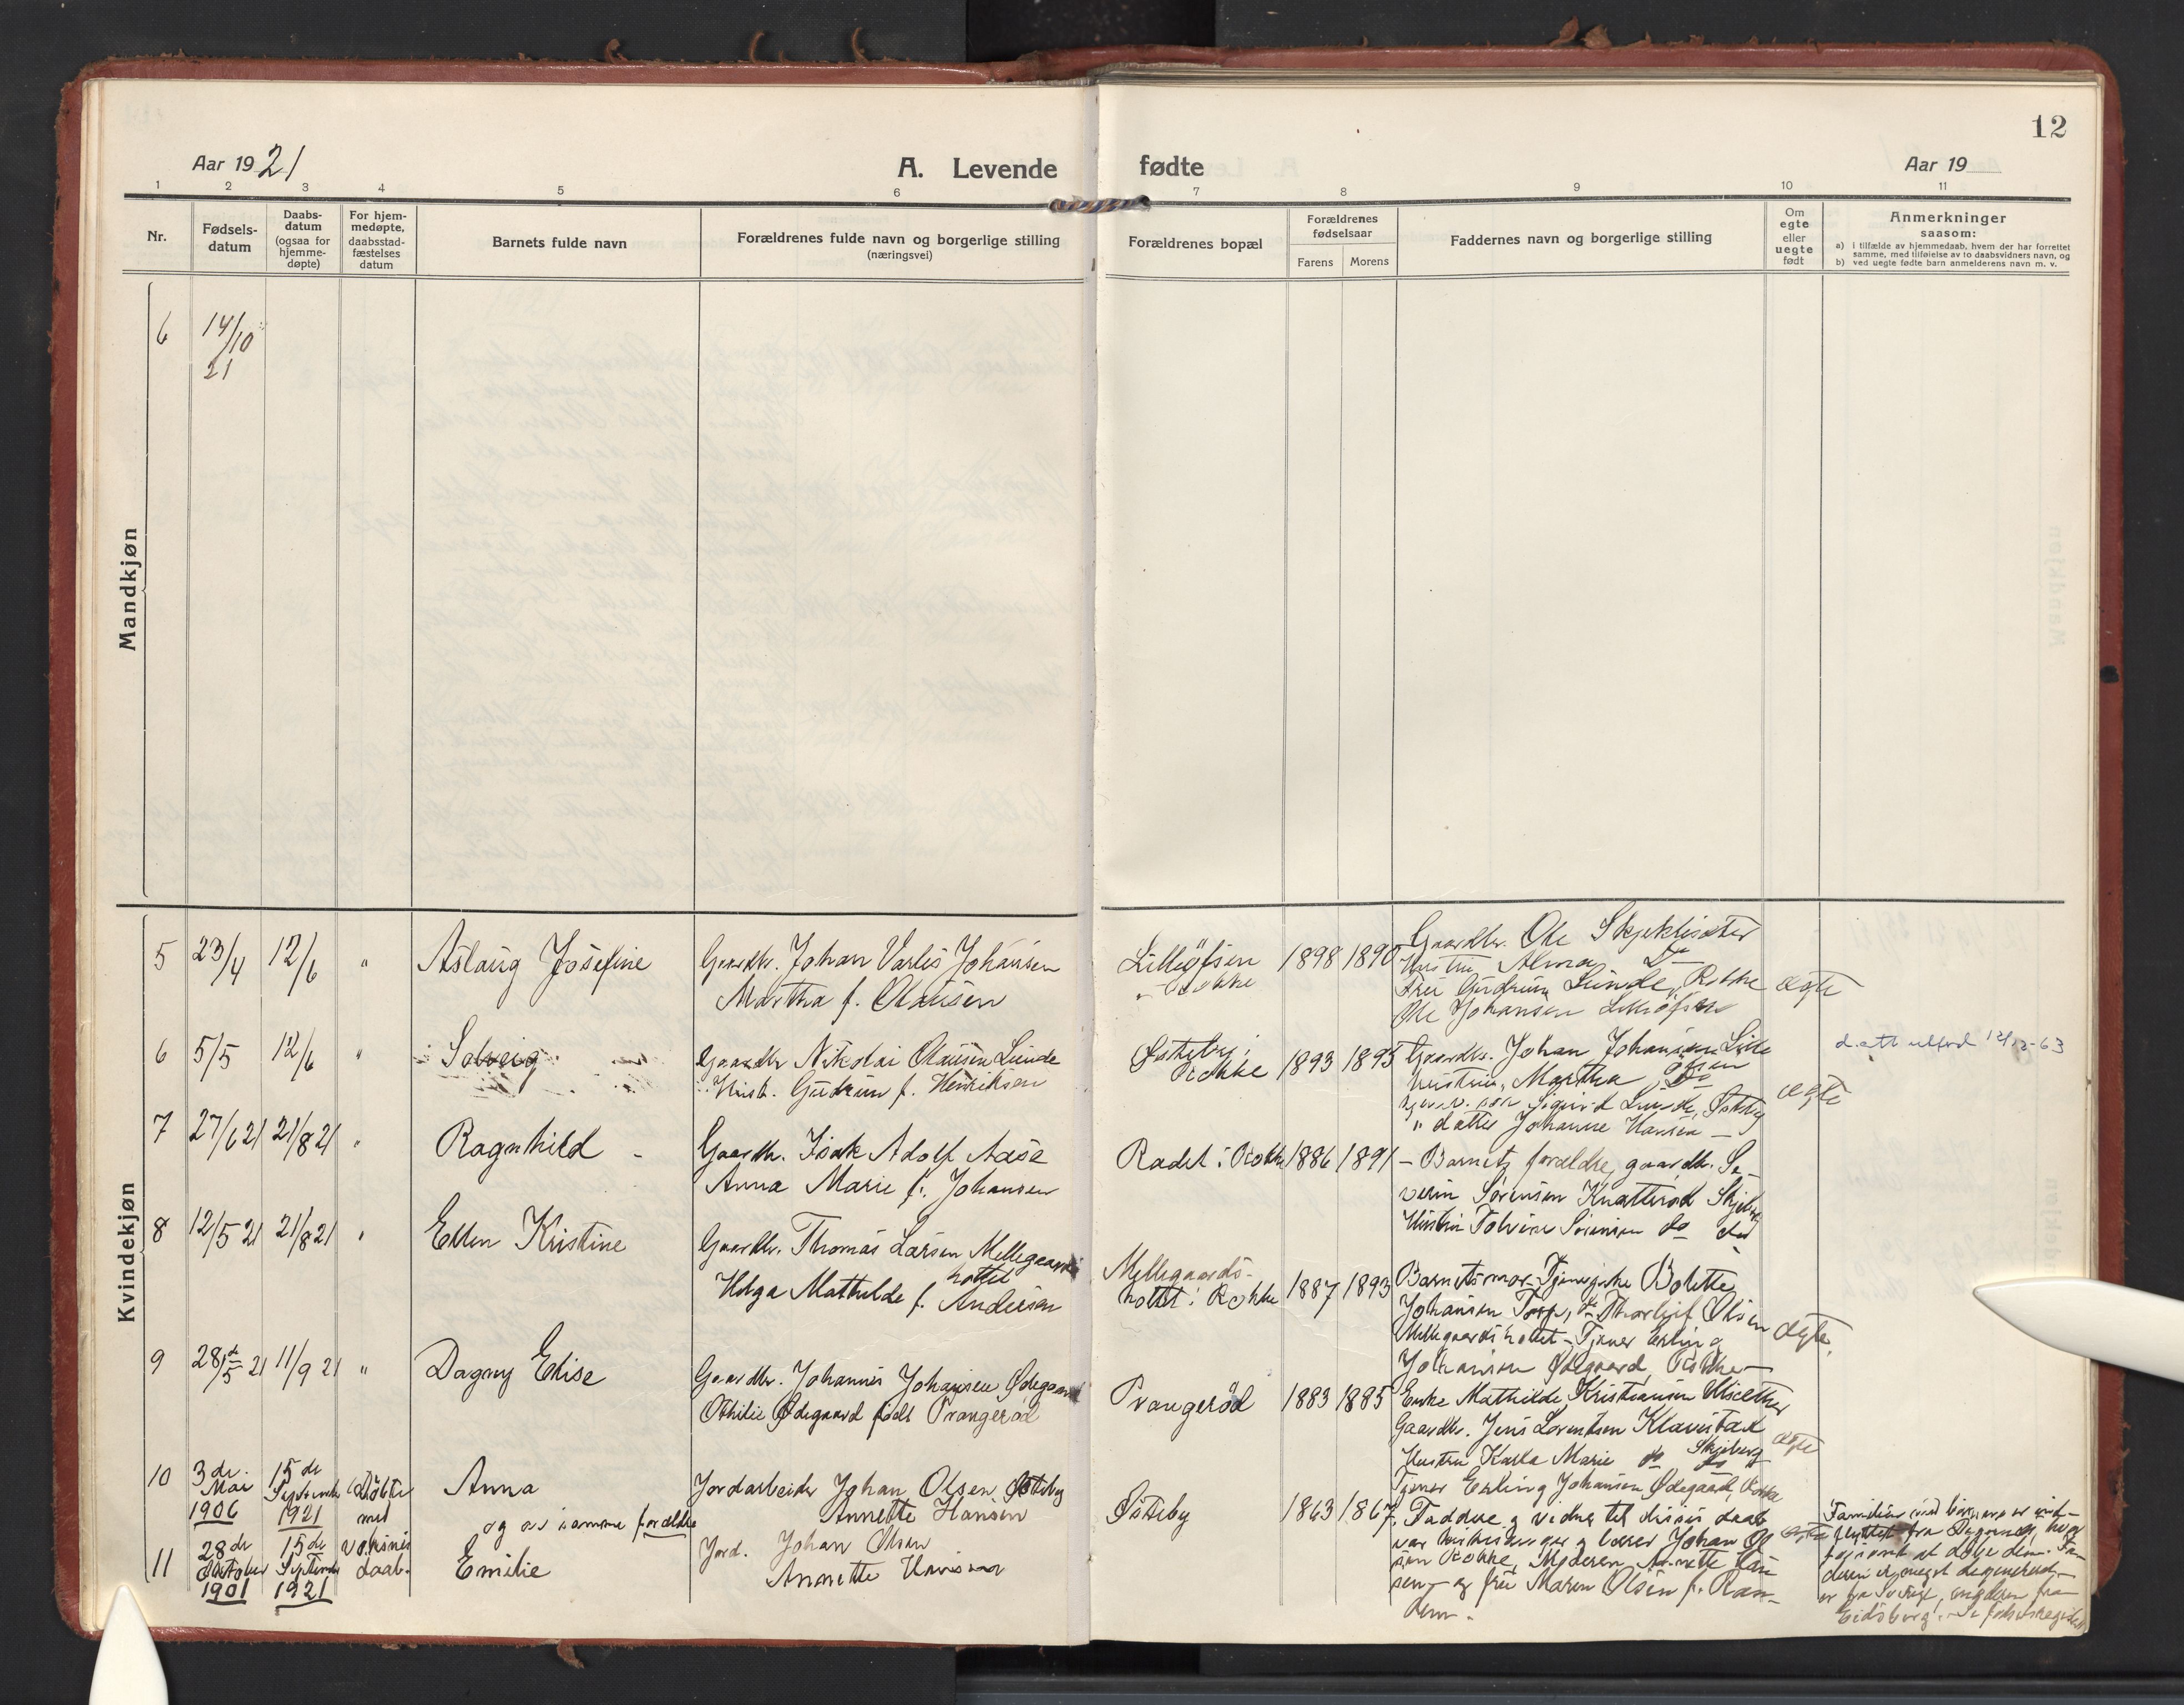 12
Aar 1921
A. Levende fødte
Aar 19
1 2 3 4 5 6 7 8 9 10 11
Nr.
Fødsels-
datum
Daabs-
datum
(ogsaa for
hjemme-
døpte)
For hjem-
medøpte,
daabsstad-
fæstelses
datum
Barnets fulde navn
Forældrenes fulde navn og borgerlige stilling
(næringsvei)
Forældrenes bopæl
Forældrenes
fødselsaar
Farens Morens
Faddernes navn og borgerlige stilling
Om
egte
eller
uegte
født
Anmerkninger
saasom:
a) i tilfælde av hjemmedaab, hvem der har forrettet
samme, med tilføielse av to daabsvidners navn, og
b) ved uegte fødte barn anmelderens navn m. v.
Mandkjøn
6 14/10
21
Kvindekjøn
5 23/4 12/6 " Aslaug Josefine
Gaardbr. Johan Johansen
Martha f. Olausen
Rokke
1898 1890
Gaardbr. Ole
Hustru Alma Do
Fru Gudrun Lunde, Rokke
Ole Johansen
ægte
6 5/5 12/6 " Solveig
Gaardbr Nikolai Olausen Lunde
Hustr. Gudrun f. Henriksen
Østeby i
Rokke
1893 1895
Gaardbr. Johan Johansen Lille
Hustru, Martha Do
Sigurd Lunde, Østeby
" datter Johanne Hansen
ægte
d.att utferd 12/12-63
7 27/6 21 21/8 21 " Ragnhild
Gaardbr. Isak Adolf Aase
Anna Marie f. Johansen
Radet i Rokke
1886 1891
Barnets forældre, gaardbr. Se-
verin Sørensen Knatterød Skjeberg
Hustru Sørensen do do
8 12/5 21 21/8 21 " Ellen Kristine
Gaardbr. Thomas Larsen Mellegaards
holtet
Helga Mathilde f. Andersen
Mellegaards-
holtet i Rokke
1887 1893
Barnets mor - Tjenepike Bolette
Johansen Torp, Thorleif Olsen
Mellegaardsholtet - Tjener Erling
Johansen Ødegaard, Rokke -
ægte.
9 28/5 21 11/9 21 " Dagny Elise
Gaardbr. Johannes Johansen Ødegaard
Othilie Ødegaard født Prangerød
Prangerød
1883 1885
Enke Mathilde Kristiansen
Gaardbr. Jens Lorentsen Klavestad
Skjeberg
Hustru Karla Marie do do
Tjener Erling Johansen Ødegaard, Rokke
ægte
10 3de
Mai
1906
15de
September
1921
Døbte
med
voksnes
daab.
Anna
og av samme forældre
Jordarbeider Johan Olsen Østeby
Annette Hansen
Østeby
1863 1867
Faddere og vidner til disses daab
var kirkesanger og lærer Johan Ol
sen Rokke, Moderen Annette Han
sen - og fru Maren Olsen f. Ram-
ægte
11 28de
Oktober
1901
15de
September
1921
Emilie
Jord. Johan Olsen
Annette Hansen
Familien
flyttet fra
at døbe dem.
meget degenereret -
er fra Sverige, moderen fra
Eidsberg.